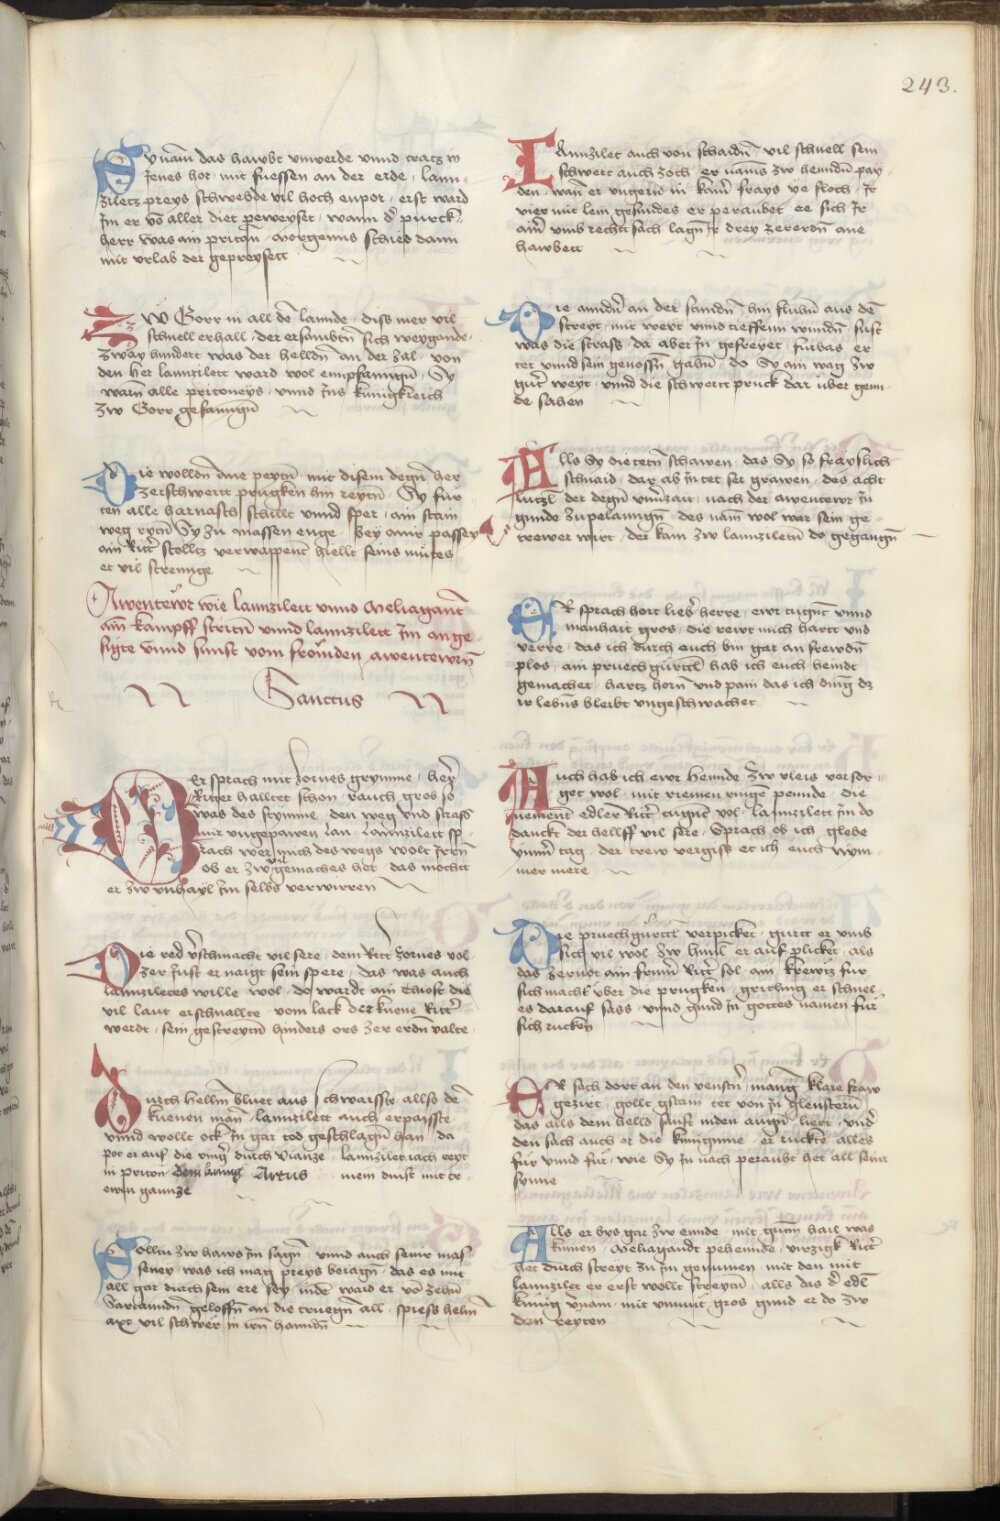 243.
Sy nam das hawbt unwerde unnd tratz in
Jenes hof mit fuessen an der erde lann-
ziletz preys schwebde vil hoch enpor erst ward
Im er vō aller diet peweyset wann d purck-
herr was ain priton morgenns schied dann
mit urlab der gepreysett
Zw Gorr in all dē lannde diss mer vil
schnell erhall der ersambtn̄ sich weygande
zway hundert was der helldn̄ an der zal von
den her lannzilett ward wol empfanngn̄ Sy
warn̄ alle pritoneys unnd Jns kunigkreich
zw Gorr gefanngn̄
Die wolldn̄ ane peytn̄ mit disem degn̄ her
zerschwertt prugken hin reytn̄ Sy fur-
ten alle harnasch schillt unnd sper ain stain
weg rytn̄ Sy zu massen enge bey ainr passey
ain Rittr̄ stolltz verwappent hiellt seins mutes
et vil strennge
Awentewr wie lannzilett unnd Meliagantz
ain kampff stritn̄ unnd lannzilett Im ange-
sigte unnd sunst vom fromden awentewrn̄
Sanctus
Der sprach mit zornes grymme her
Ritter halltet schon rauch gros so
was des stymme den weg und strass
mir ungepawen lan Lannzilett sp-
rach wer mich des wegs wolt Irrn̄
ob er zw ungemaches het das mocht
er zw unhayl Im selbs verwirren
Die red v̄schmacht vil sere dem Rittr̄ zornes vol
zer Just er naigt sein spere das was auch
lannziletes wille wol do wardt ain thost die
vil laut erschnallte vom lack der kuene Rittr̄
werdt sein gestreytn̄ hinders ors zer erdn̄ valte
Durch hellm̄ bluet aus schwaisste allso dē
kuenen man̄ lannzilett auch erpaisste
unnd wollt ock In gar tod geschlagn̄ han da
pot er auf die vinḡ durch vianze lannzilet sach reyt
in priton dem kunig Artus mein dinst mit tr-
ewen gantze
Solltu zw haws Im sagn̄ unnd auch seinr mas-
seney was ich mag preys beiagn̄ das es mit
all gar durch sein ere sey indē ward er vō zehn̄
Sariannden̄ geloffn̄ an die truegn̄ all spiess helm̄
axt vil schwer in irn̄ hanndn̄
Lannzilet auch von schaidn̄ vil schnell sein
schwert auch zoch er namis zw hemdn̄ pay-
den wan̄ er ungern̄ in kainr̄ frays ye floch Ir
vier mit lem gesundes er peraubet ee sich Ir
ainr̄ umb recht sach lagn̄ Ir drey zererdn̄ ane
hawbett
Die anndn̄ an der stundn̄ hin fluhn̄ aus dē
streyt mit wert unnd tieffenn wundn̄ sust
was die strass da aber In gefreyet furbas er
tet unnd sein genossn̄ gahn̄ do Sy ain weg zw
gut̄ weyt unnd die schwertt pruck dar uber gein-
de sahen
Alls Sy die tetn̄ schawen das Sy so frayslich
schnaid dar ab In tet ser grawen des acht
lutzl̄ der degn̄ unuzait nach der awentewr In
gunde zupelanngn̄ des nam̄ wol war sein ge-
trewer wirt der kam zw lannziletn̄ do gegangn̄
Er sprach hort lieb̄ herre ewr tugnt̄ unnd
manhait gros die rewt mich hartt und
verre das ich durch euch bin gar an frewdn̄
plos ain pruech gurttl̄ hab ich euch heindt
gemachet hartz horn̄ und pain das ich ding dz
ir lebn̄s bleibt ungeschwachet
Auch hab ich ewr hemde zw vleis versor-
get wol mit riemen ringe peunde die
nement̄ edler Rittr̄ tugnt̄ vol lannzilett Im do
danckt der hellff vil sere Sprach ob ich glebe
ym̄n̄ tag der trew vergiss et ich euch nym-
mer mere
Die pruechgurttl̄ verpicket gurtt er umb
sich vil wol zw himl̄ er auf plicket als
das zernot ain frumr̄ Rittr̄ sol ain krewtz fur
sich macht uber die prugken gritling er schnel-
es darauf sass unnd gund In gottes namen fur
sich rucken
Er sach dort an den venstn̄ maniḡ klare fraw
gezirt gollt gstain tet von In glensterū
das alls dem helld sanft inden augn̄ liert und̄
den sach auch er die kuniginne er ruckte alles
fur unnd fur wie Sy In nach peraubt het all seinr
synne
Alls er bys gar zw ennde mit guetm̄ hail was
kumen Meliagandt pehennde virzigk Rittr̄
het durch streyt zu Im genumen mit den mit
lannzilet er erst wollt streytn̄ alls dis d̄ edl̄
kunig v̄nam mit unmut gros gund er do zw
den reyten